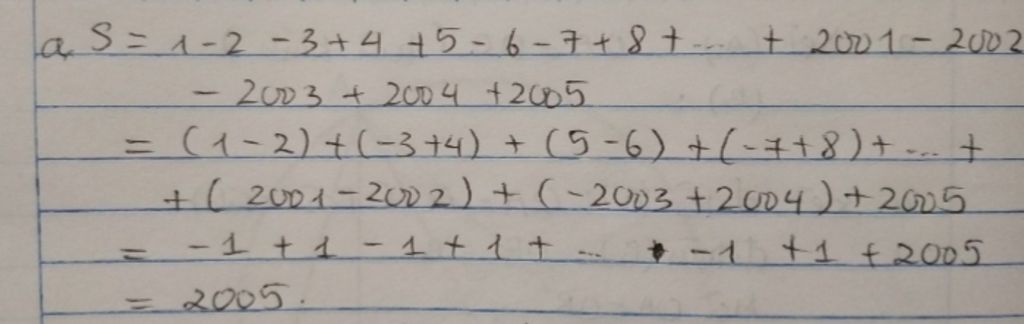 a, S = 1 - 2 - 3 + 4 + 5 - 6 - 7 + 8 + ... + 2001 - 2002
- 2003 + 2004 + 2005
= (1 - 2) + (-3 + 4) + (5 - 6) + (-7 + 8) + ... +
+ (2001 - 2002) + (-2003 + 2004) + 2005
= -1 + 1 - 1 + 1 + ... -1 + 1 + 2005
= 2005.